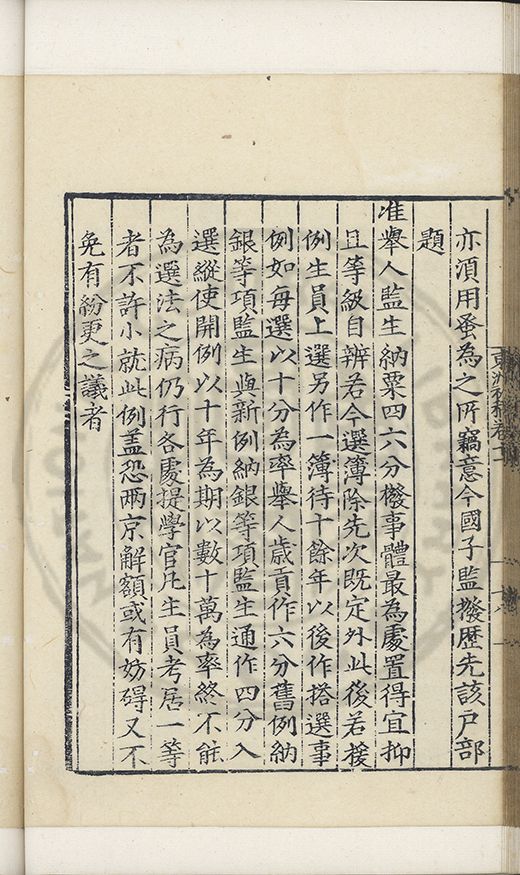 亦須用蚤為之所竊意今國子監撥歷先該戶部
題
准舉人監生納粟四六分撥事體最為處置得宜抑
且等級自辨若今選簿除先次既定外此後若援
例生員上選另作一簿待十餘年以後作搭選事
例如每選以十分為率舉人歲貢作六分舊例納
銀等項監生與新例納銀等項監生通作四分入
選縱使開例以十年為期以數十萬為率終不能
為選法之病仍行各處提學官凡生員考居一等
者不許小就此例盖恐兩京解額或有妨碍又不
免有紛更之議者